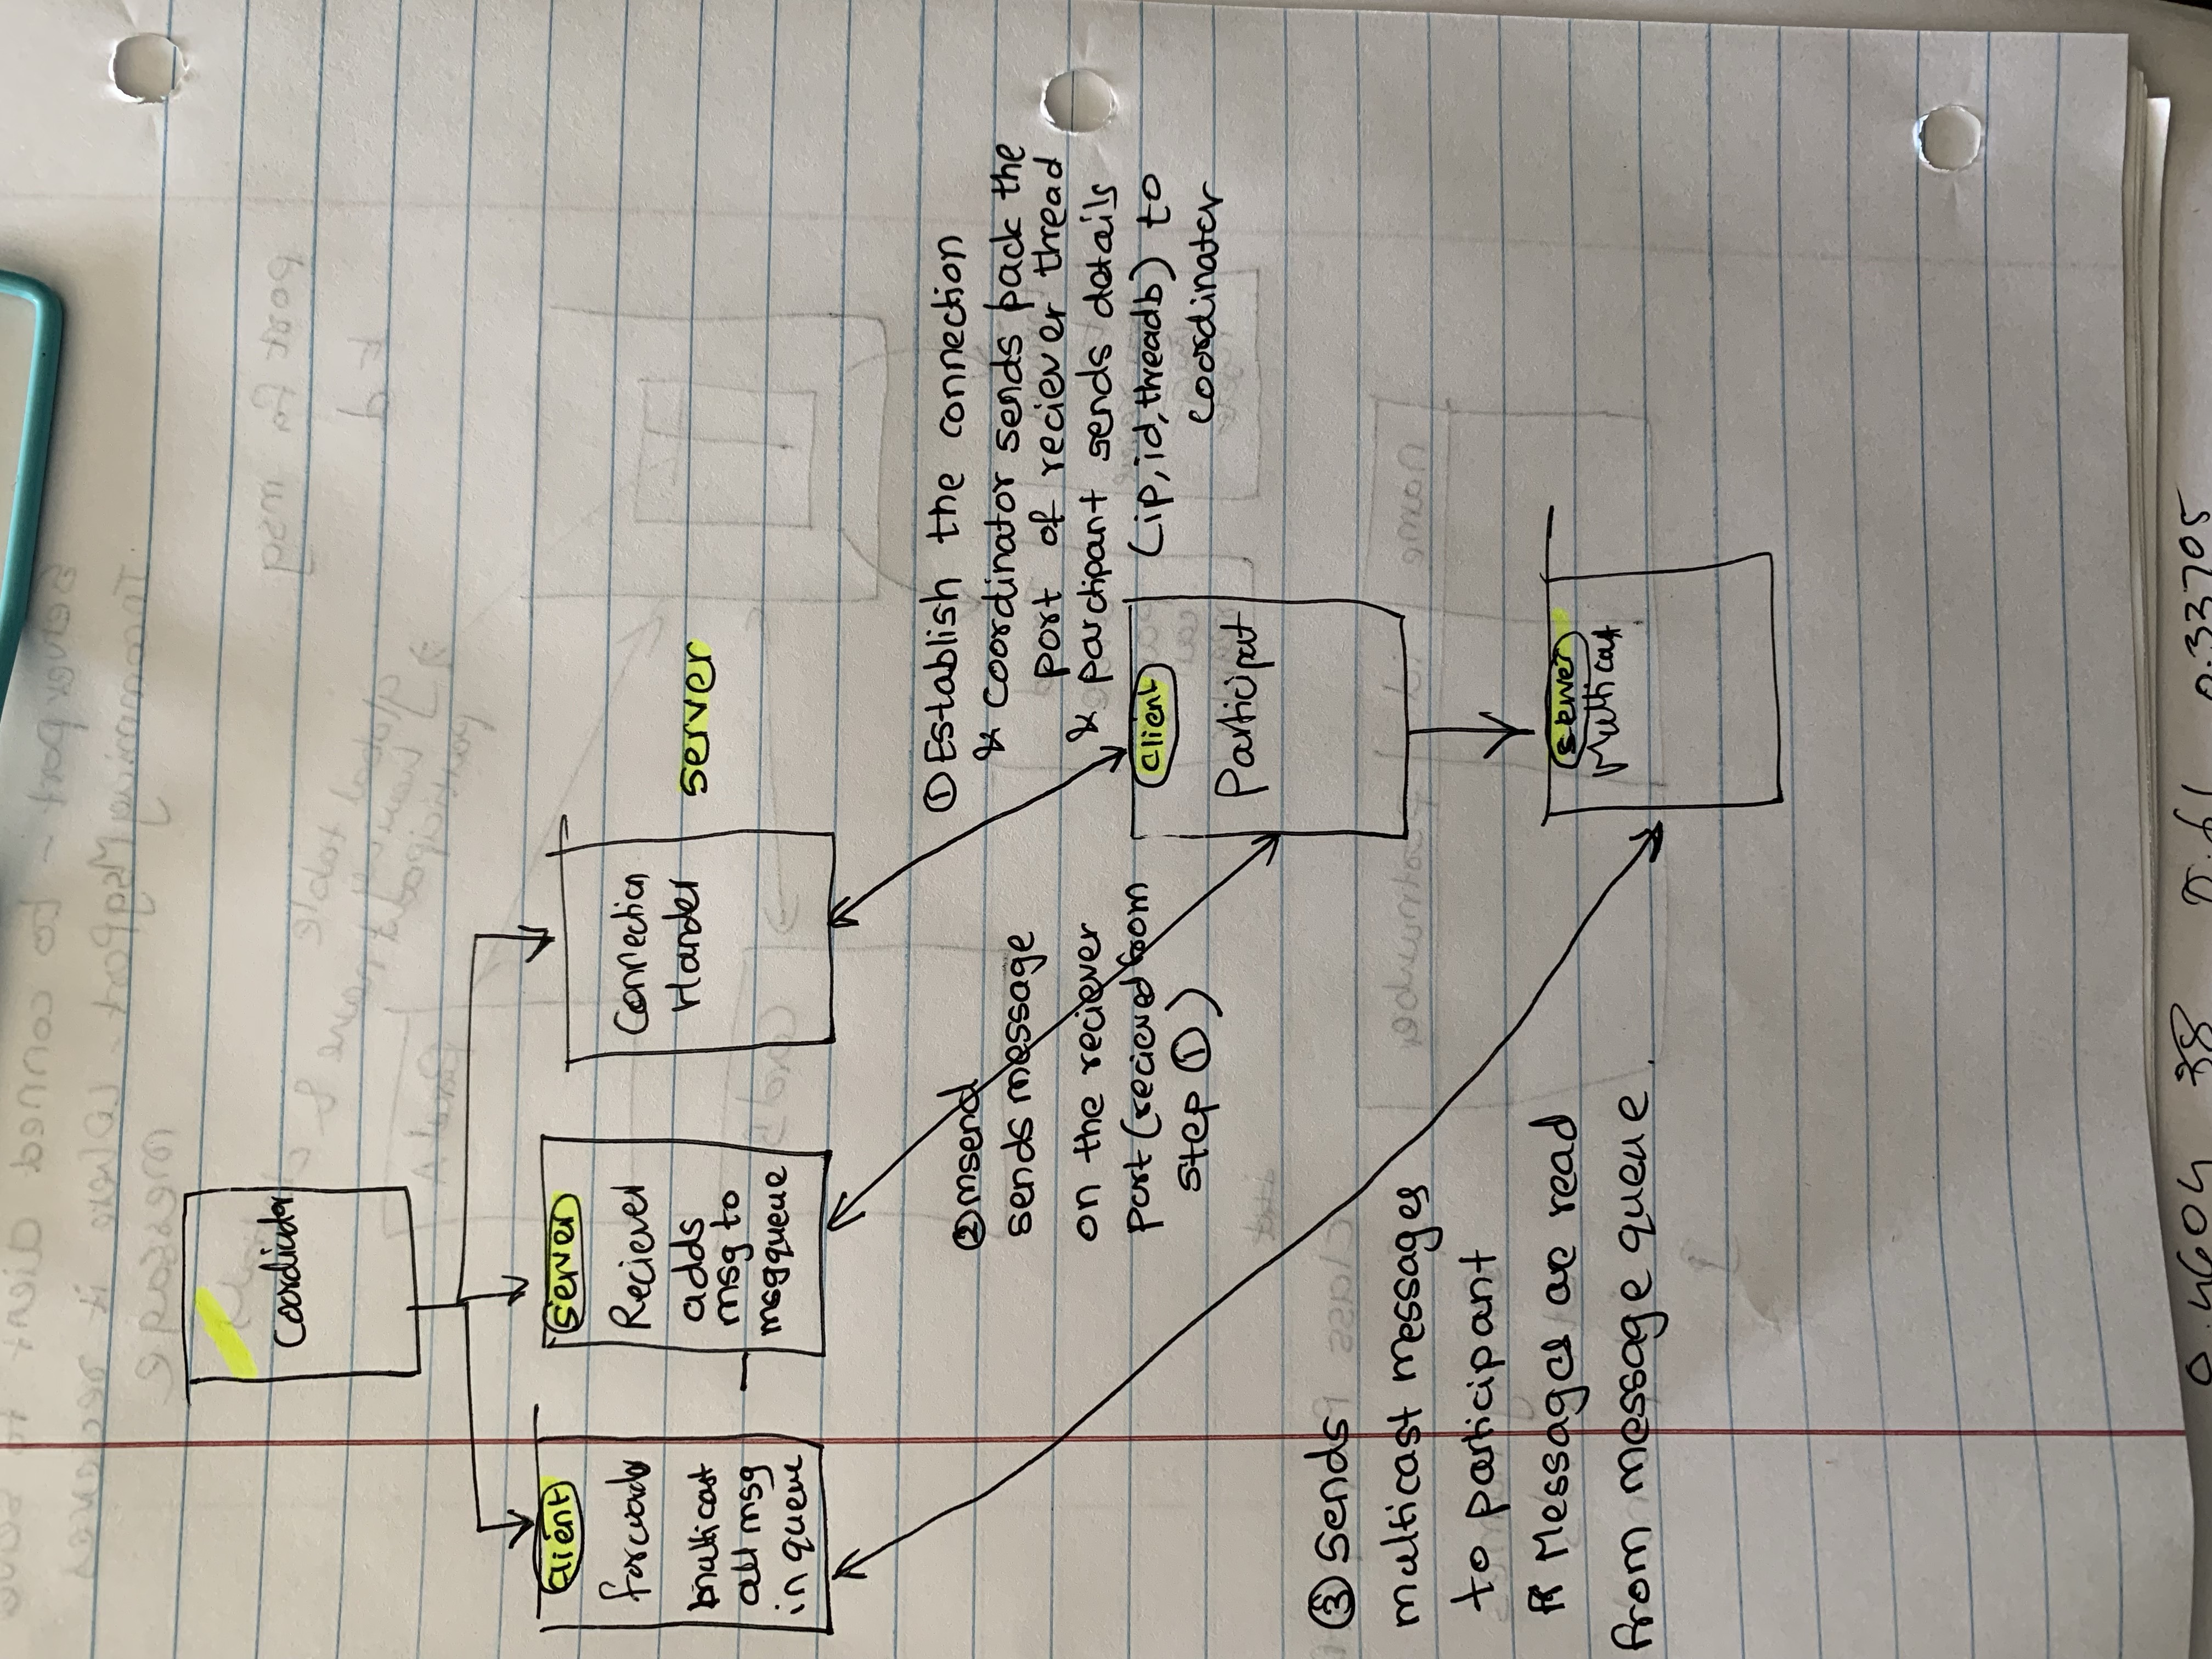 Coordinator
client
forwards
multicast
all msg
in queue
server
Reciever
adds
msg to
msgqueue
Connection
Hander
server
① Establish the connection
* coordinator sends pack the
port of reciever thread
* participant sends details
(ip, id, threadb) to
coordinater
② msend
sends message
on the reciever
port (recieved from
step ①)
client
Participat
server
Multicast
③ Sends
multicast messages
to participant
* Messages are read
from message queue.
0.4604 38
0.33705